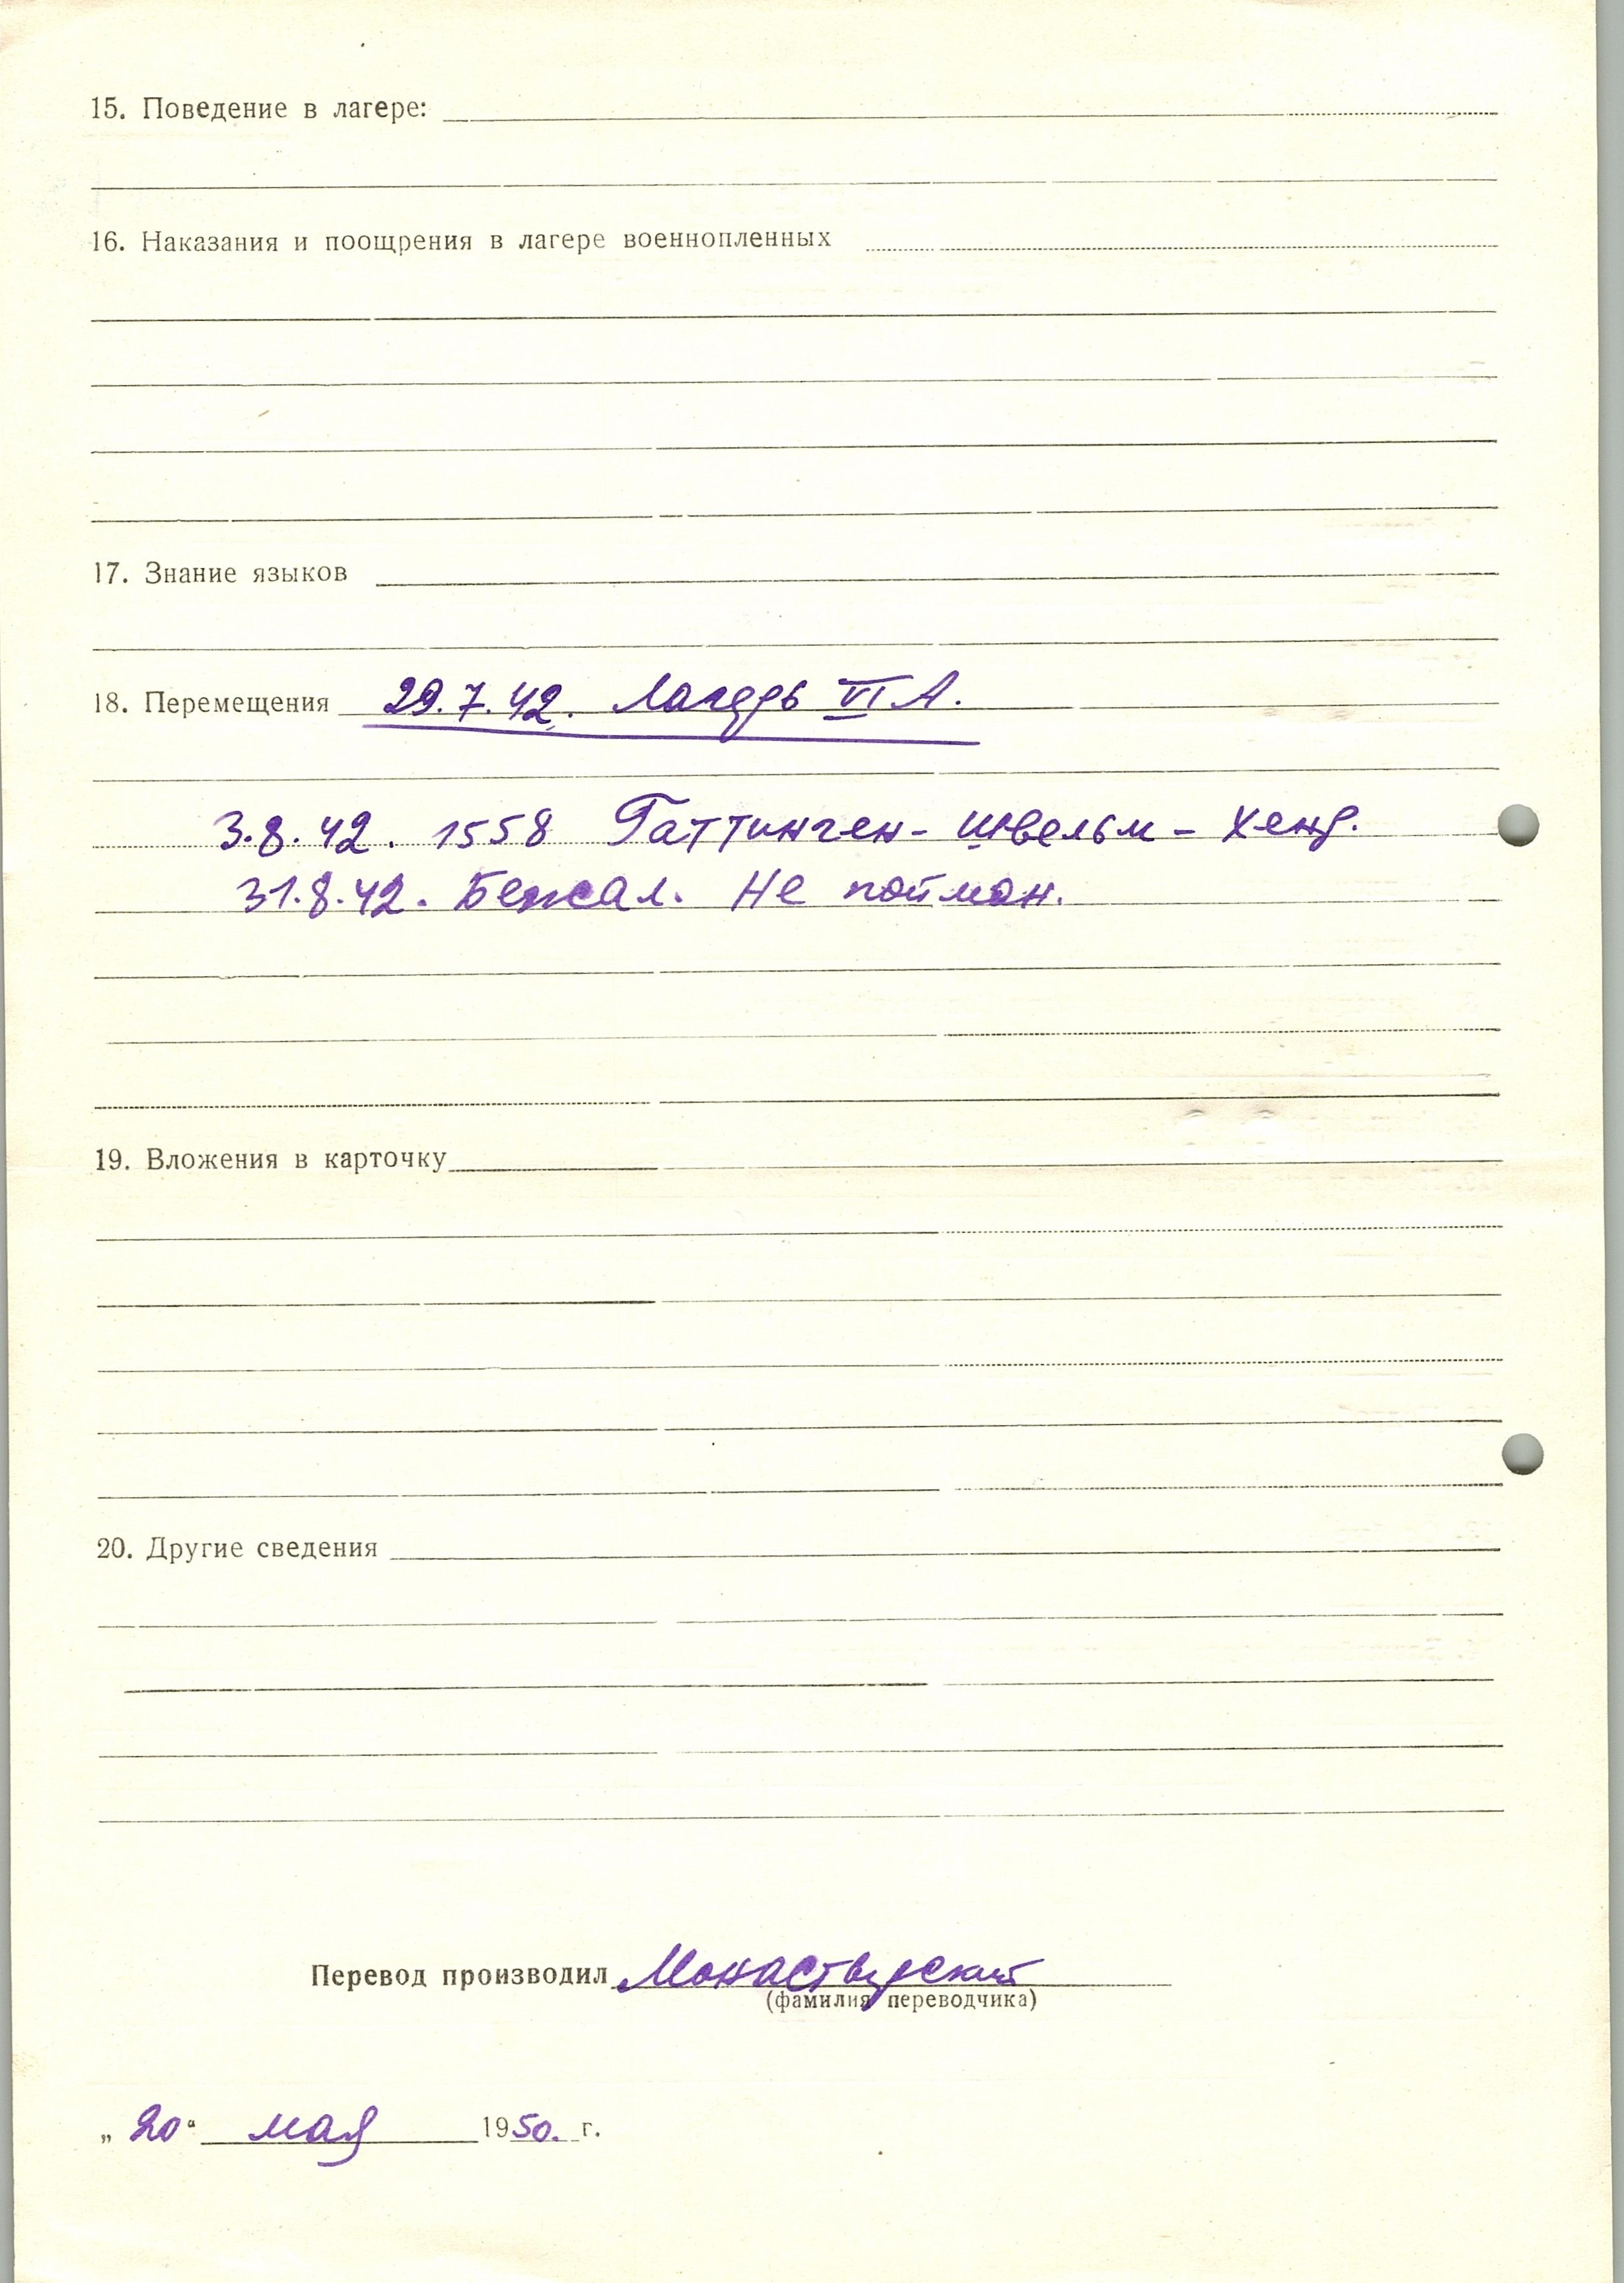 15. Поведение в лагере:
16. Наказания и поощрения в лагере военнопленных
17. Знание языков
18. Перемещения 29.7.42. Лагерь VI А.
3.8.42. 1558 Гаттинген - Швельм - Хенр.
31.8.42. Бежал. Не пойман.
19. Вложения в карточку
20. Другие сведения
Перевод производил Монастырский
(фамилия переводчика)
„20“ мая 1950. г.